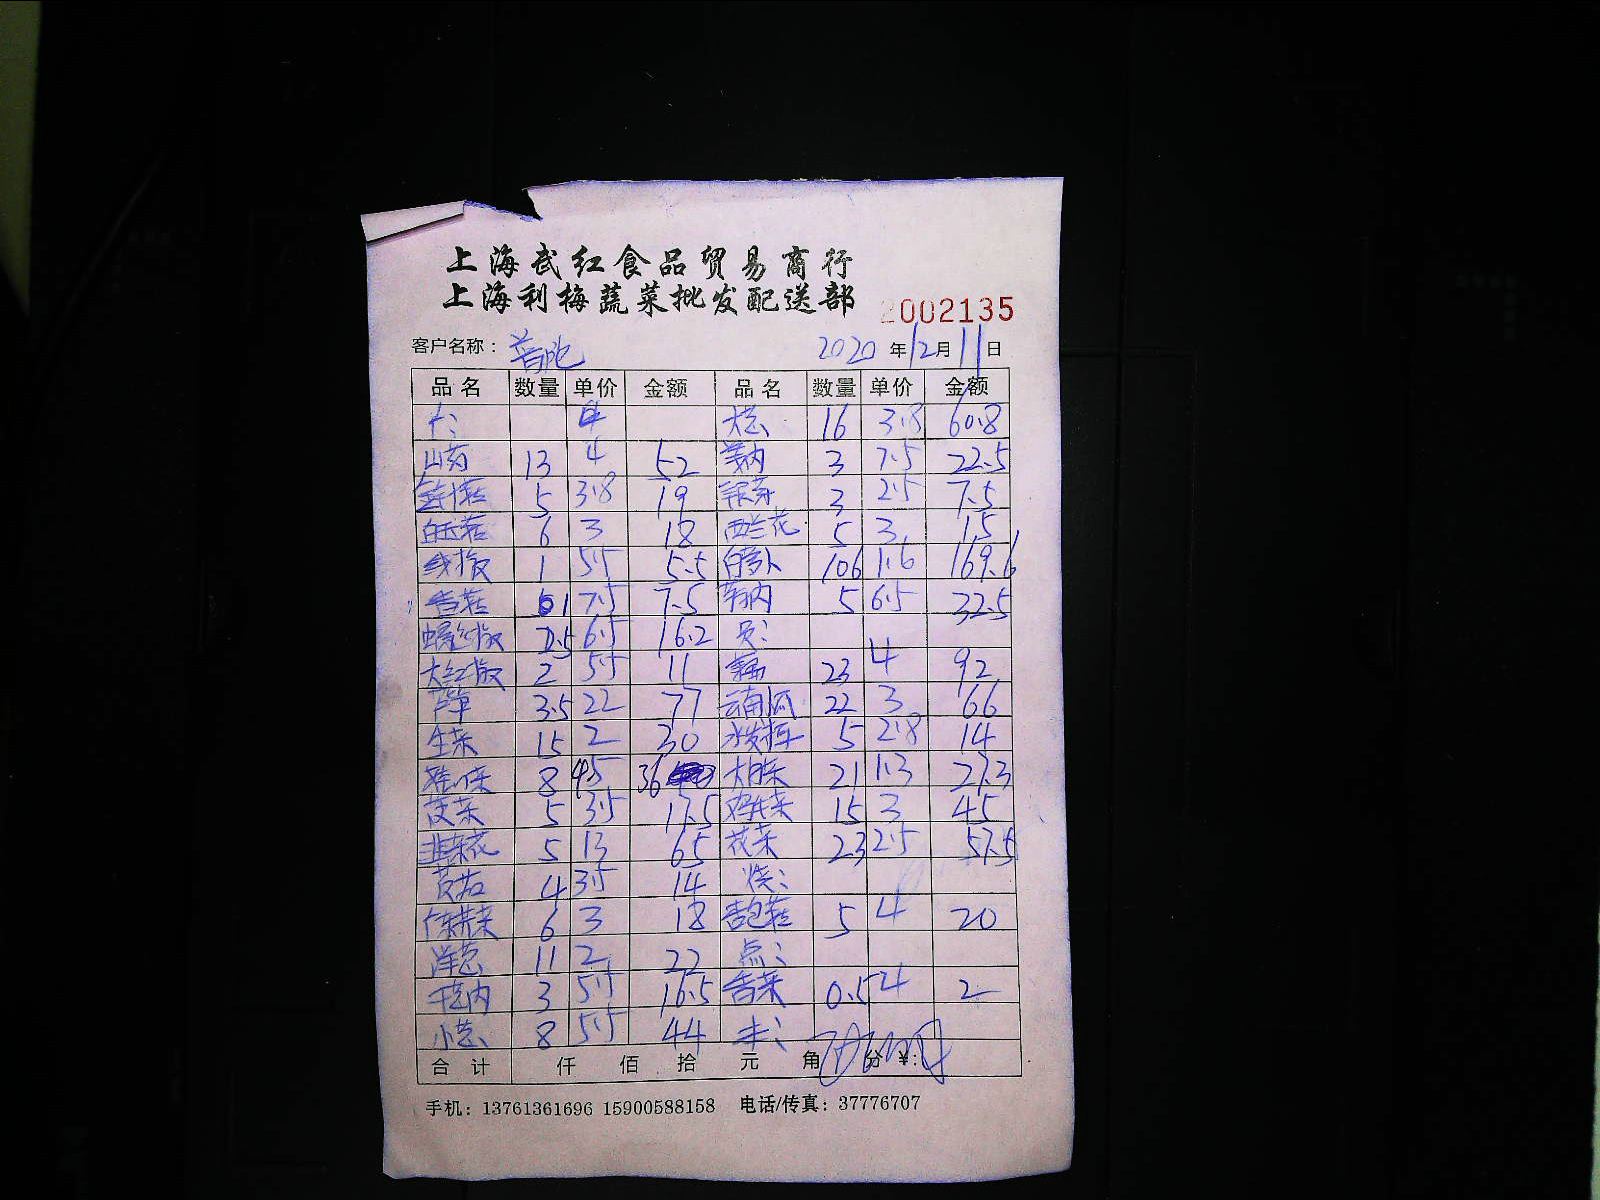 上海武红食品贸易商行
上海利梅蔬菜批发配送部
2002135
客户名称： 普陀 2020 年 12 月 11 日
品名 数量 单价 金额 品名 数量 单价 金额
大葱 16 3.8 60.8
山药 13 4 52 姜肉 3 7.5 22.5
5 3.8 19 银芽 3 2.5 7.5
白玉菇 6 3 18 西兰花 5 3 15
线椒 1 5.5 5.5 白萝卜 106 1.6 169.6
香菇 1 7.5 7.5 5 6.5 32.5
螺丝椒 2.5 6.5 16.2
大红椒 2 5.5 11 藕 23 4 92
芦笋 3.5 22 77 云南瓜 22 3 66
生菜 15 2 30 5 2.8 14
8 4.5 36 大白菜 21 1.3 27.3
茭菜 5 3.5 17.5 鸡毛菜 15 3 45
韭菜花 5 13 65 花菜 23 2.5 57.5
4 3.5 14 烧：
广东菜 6 3 18 杏鲍菇 5 4 20
洋葱 11 2 22 点：
3 5.5 16.5 香菜 0.5 4 2
小葱 8 5.5 44
合计 仟 佰 拾 元 角 分 ¥：
手机：13761361696 15900588158 电话/传真：37776707